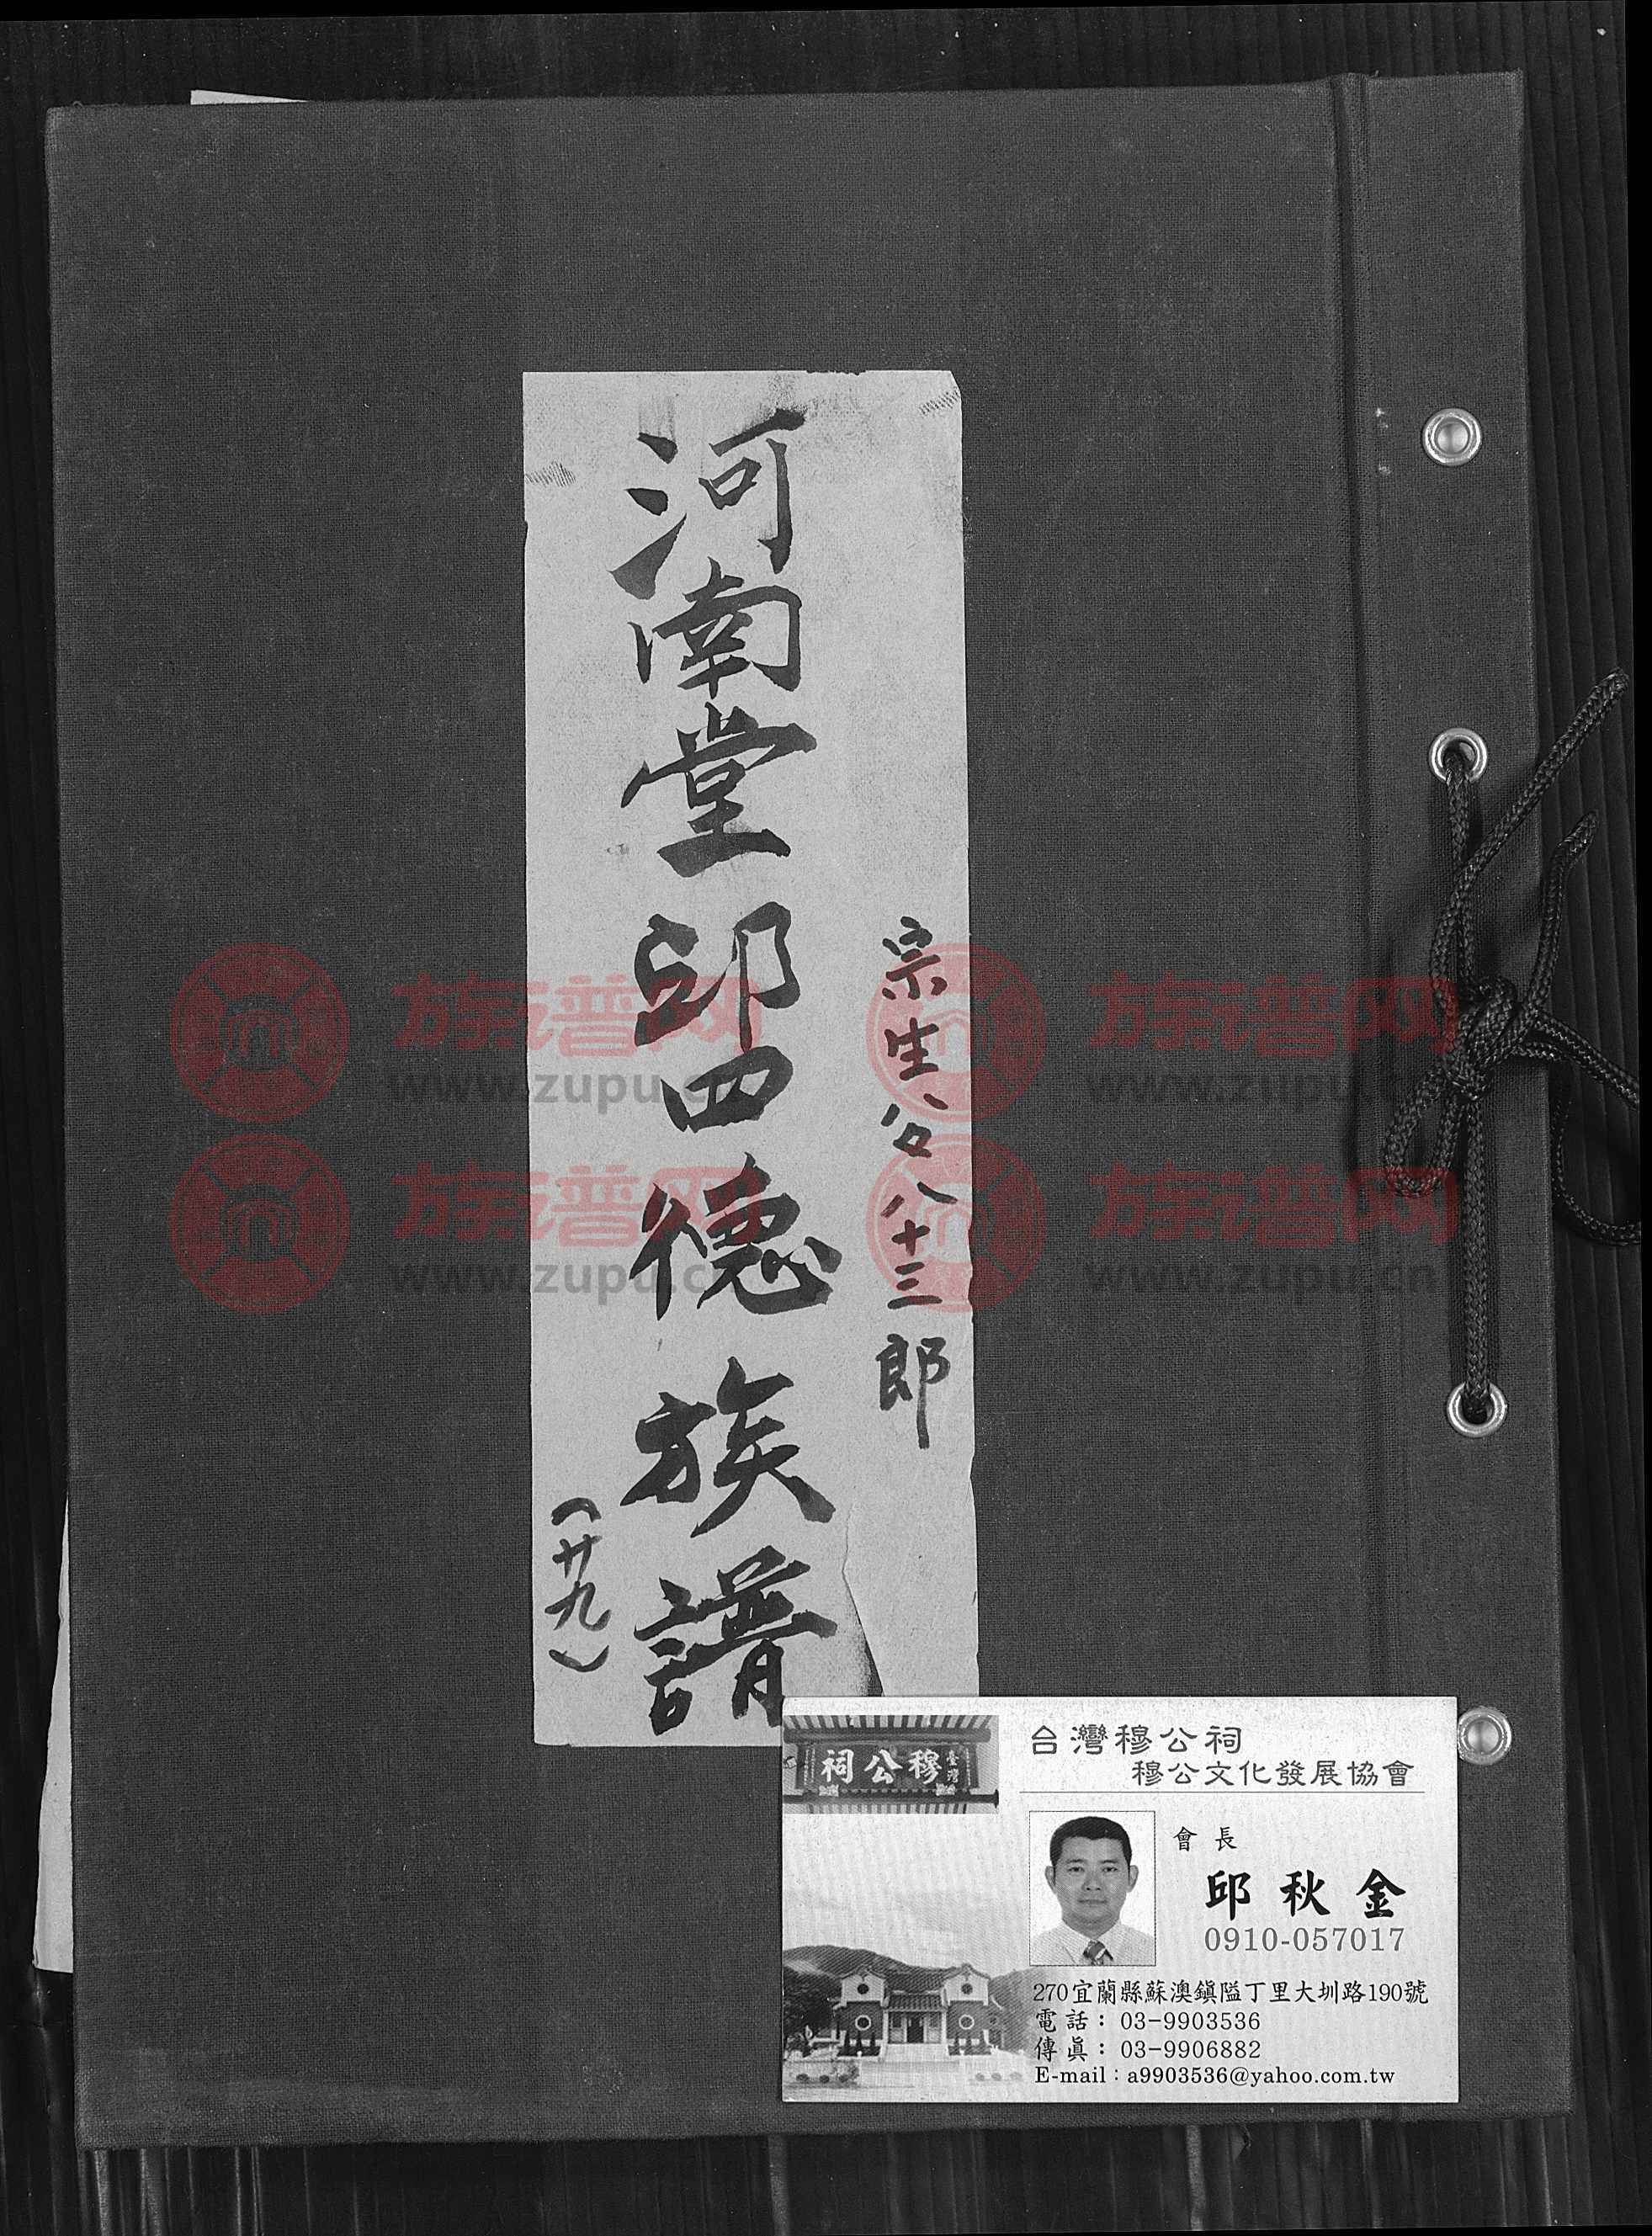 宗生公八十三郎
河南堂邱四德族譜
（廿九）
臺灣
穆公祠
台灣穆公祠
穆公文化發展協會
會長
邱秋金
0910-057017
270宜蘭縣蘇澳鎮隘丁里大圳路190號
電話：03-9903536
傳眞：03-9906882
E-mail：a9903536@yahoo.com.tw
族谱网
www.zupu.cn
族谱网
www.zupu.cn
族谱网
www.zupu.cn
族谱网
www.zupu.cn